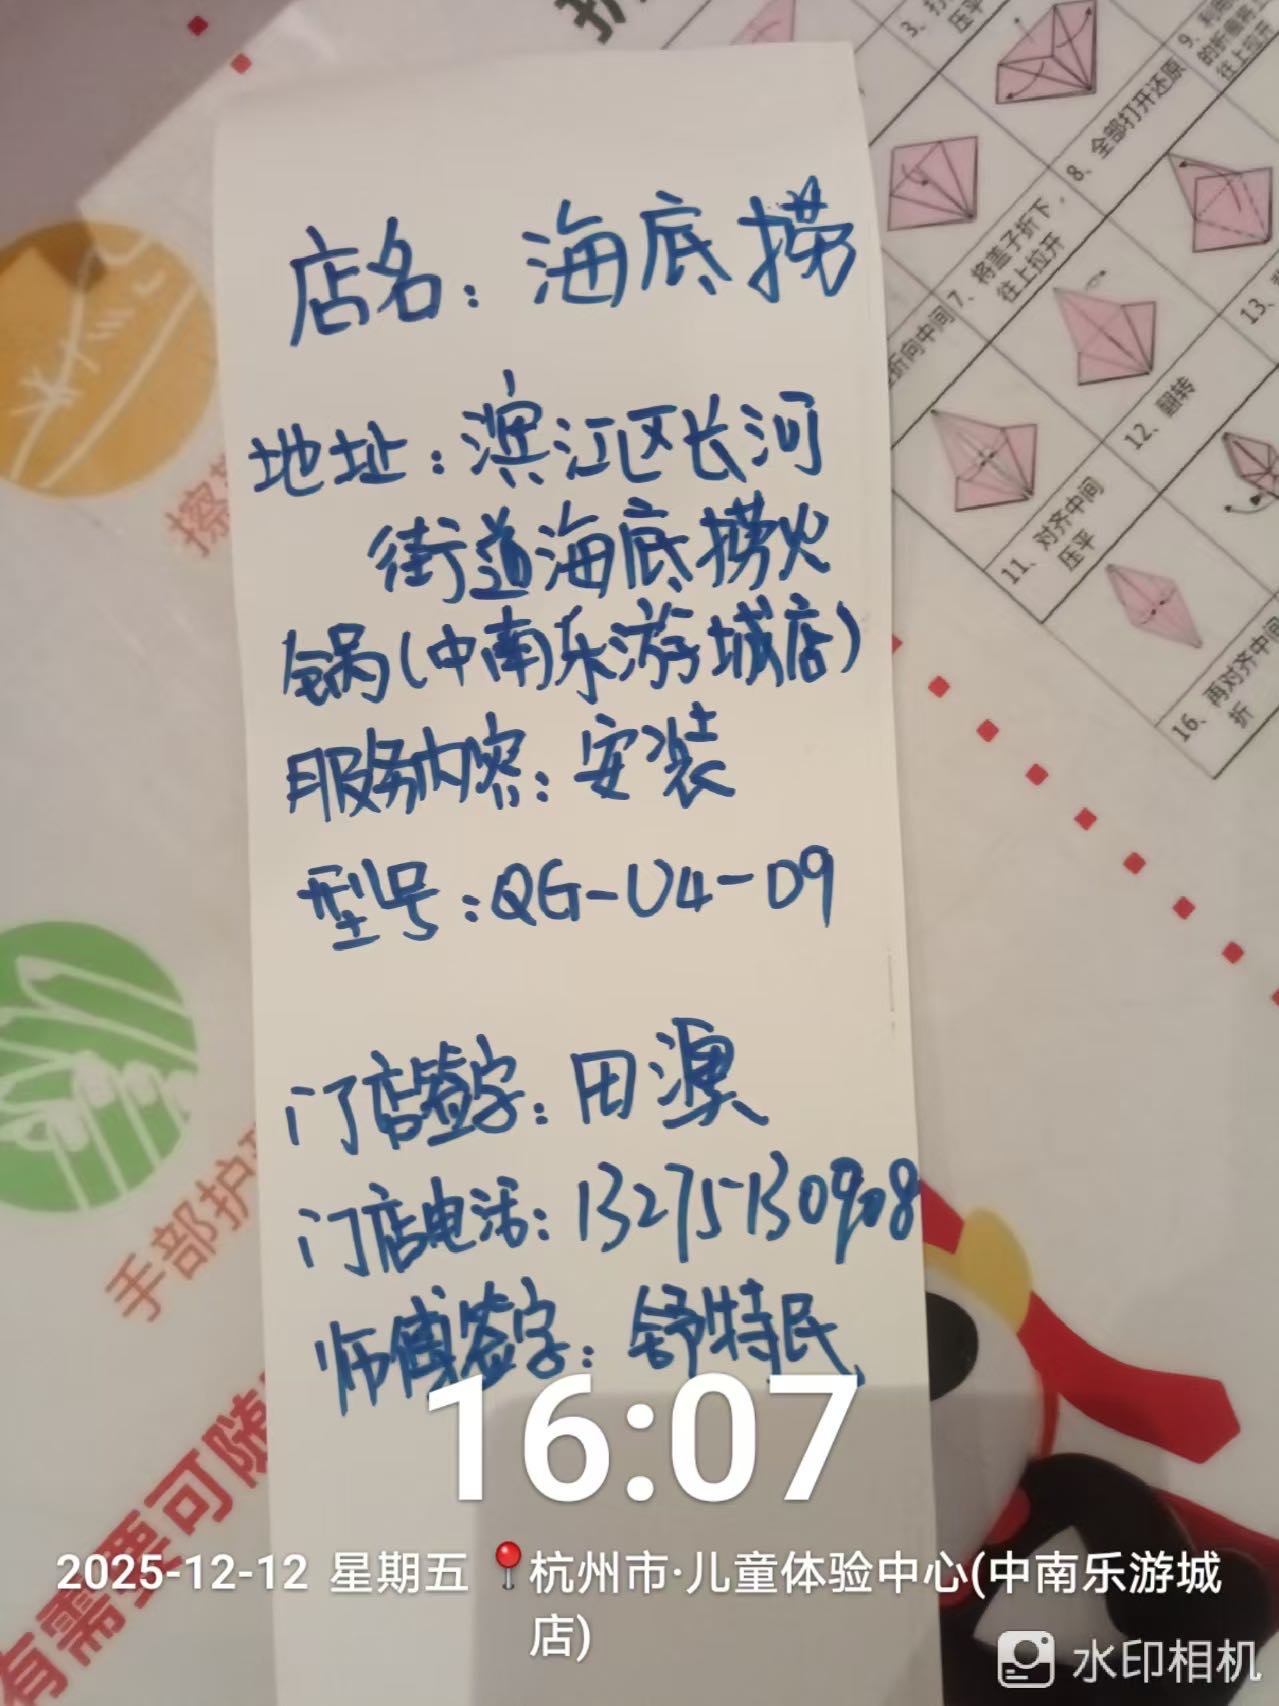 店名：海底捞
地址：滨江区长河
街道海底捞火
锅(中南乐游城店)
服务内容：安装
型号：QG-U4-D9
门店签字：田澳
门店电话：13275130908
师傅签字：舒特民
16:07
2025-12-12 星期五 杭州市·儿童体验中心(中南乐游城
店)
水印相机
手部护
有需要可随
擦
8、全部打开还原
7、将盖子折下，
往上拉开
折向中间
12、翻转
11、对齐中间
压平
16、再对齐中间
折
13、
3、
压平
的折痕将
往上拉开